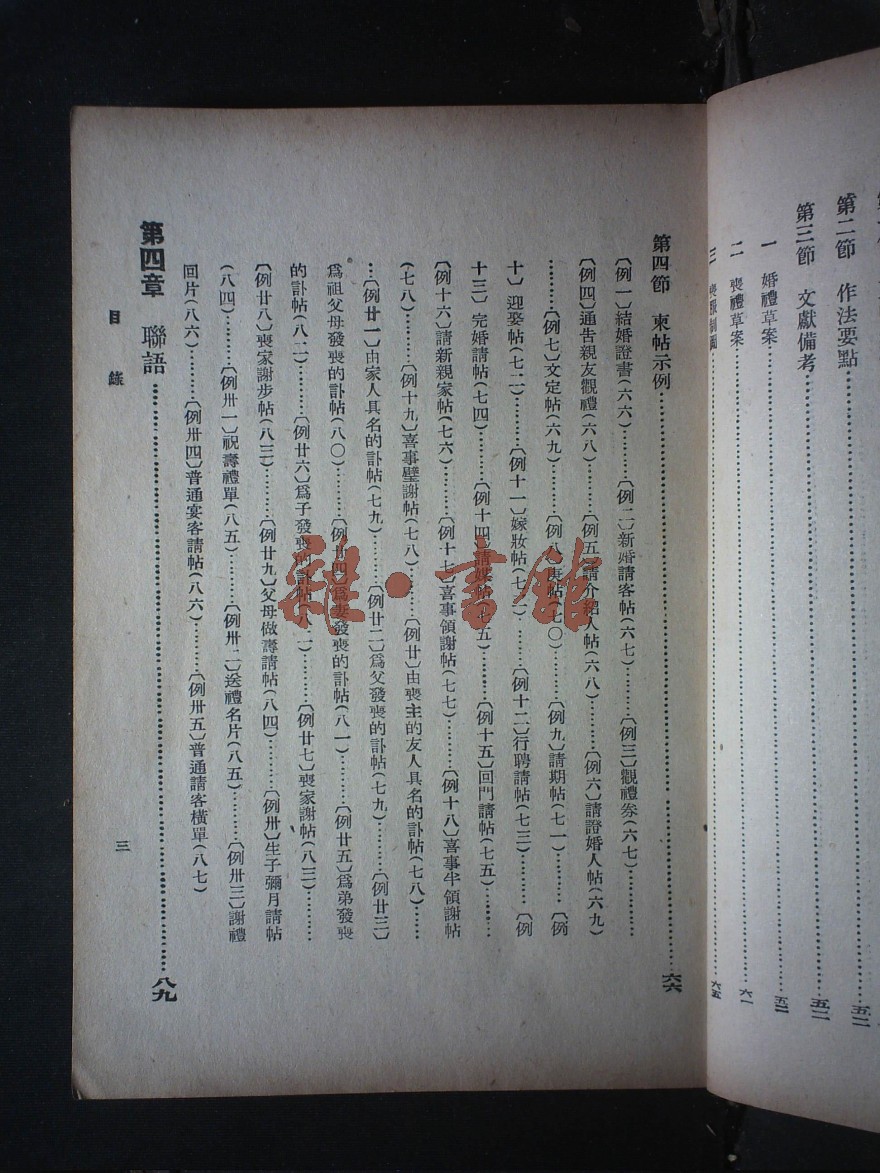 第二節 作法要點……五二
第三節 文獻備考……五二
一 婚禮草案……五二
二 喪禮草案……六一
三 喪服制圖……六五
第四節 柬帖示例……六六
〔例一〕結婚證書(六六)……〔例二〕新婚請客帖(六七)……〔例三〕觀禮券(六七)……
〔例四〕通告親友觀禮(六八)……〔例五〕請介紹人帖(六八)……〔例六〕請證婚人帖(六九)
……〔例七〕文定帖(六九)……〔例八〕庚帖(七〇)……〔例九〕請期帖(七一)……〔例
十〕迎娶帖(七二)……〔例十一〕嫁妝帖(七二)……〔例十二〕行聘請帖(七三)……〔例
十三〕完婚請帖(七四)……〔例十四〕請媒帖(七五)……〔例十五〕回門請帖(七五)
〔例十六〕請新親家帖(七六)……〔例十七〕喜事領謝帖(七七)……〔例十八〕喜事半領謝帖
(七八)……〔例十九〕喜事璧謝帖(七八)……〔例廿〕由喪主的友人具名的訃帖(七八)……
…〔例廿一〕由家人具名的訃帖(七九)……〔例廿二〕爲父發喪的訃帖(七九)……〔例廿三〕
爲祖父母發喪的訃帖(八〇)……〔例廿四〕爲妻發喪的訃帖(八一)……〔例廿五〕爲弟發喪
的訃帖(八二)……〔例廿六〕爲子發喪的訃帖(八二)……〔例廿七〕喪家謝帖(八三)……
〔例廿八〕喪家謝步帖(八三)……〔例廿九〕父母做壽請帖(八四)……〔例卅〕生子彌月請帖
(八四)……〔例卅一〕祝壽禮單(八五)……〔例卅二〕送禮名片(八五)……〔例卅三〕謝禮
回片(八六)……〔例卅四〕普通宴客請帖(八六)……〔例卅五〕普通請客橫單(八七)
第四章 聯語……八九
目錄
三
雜·書館